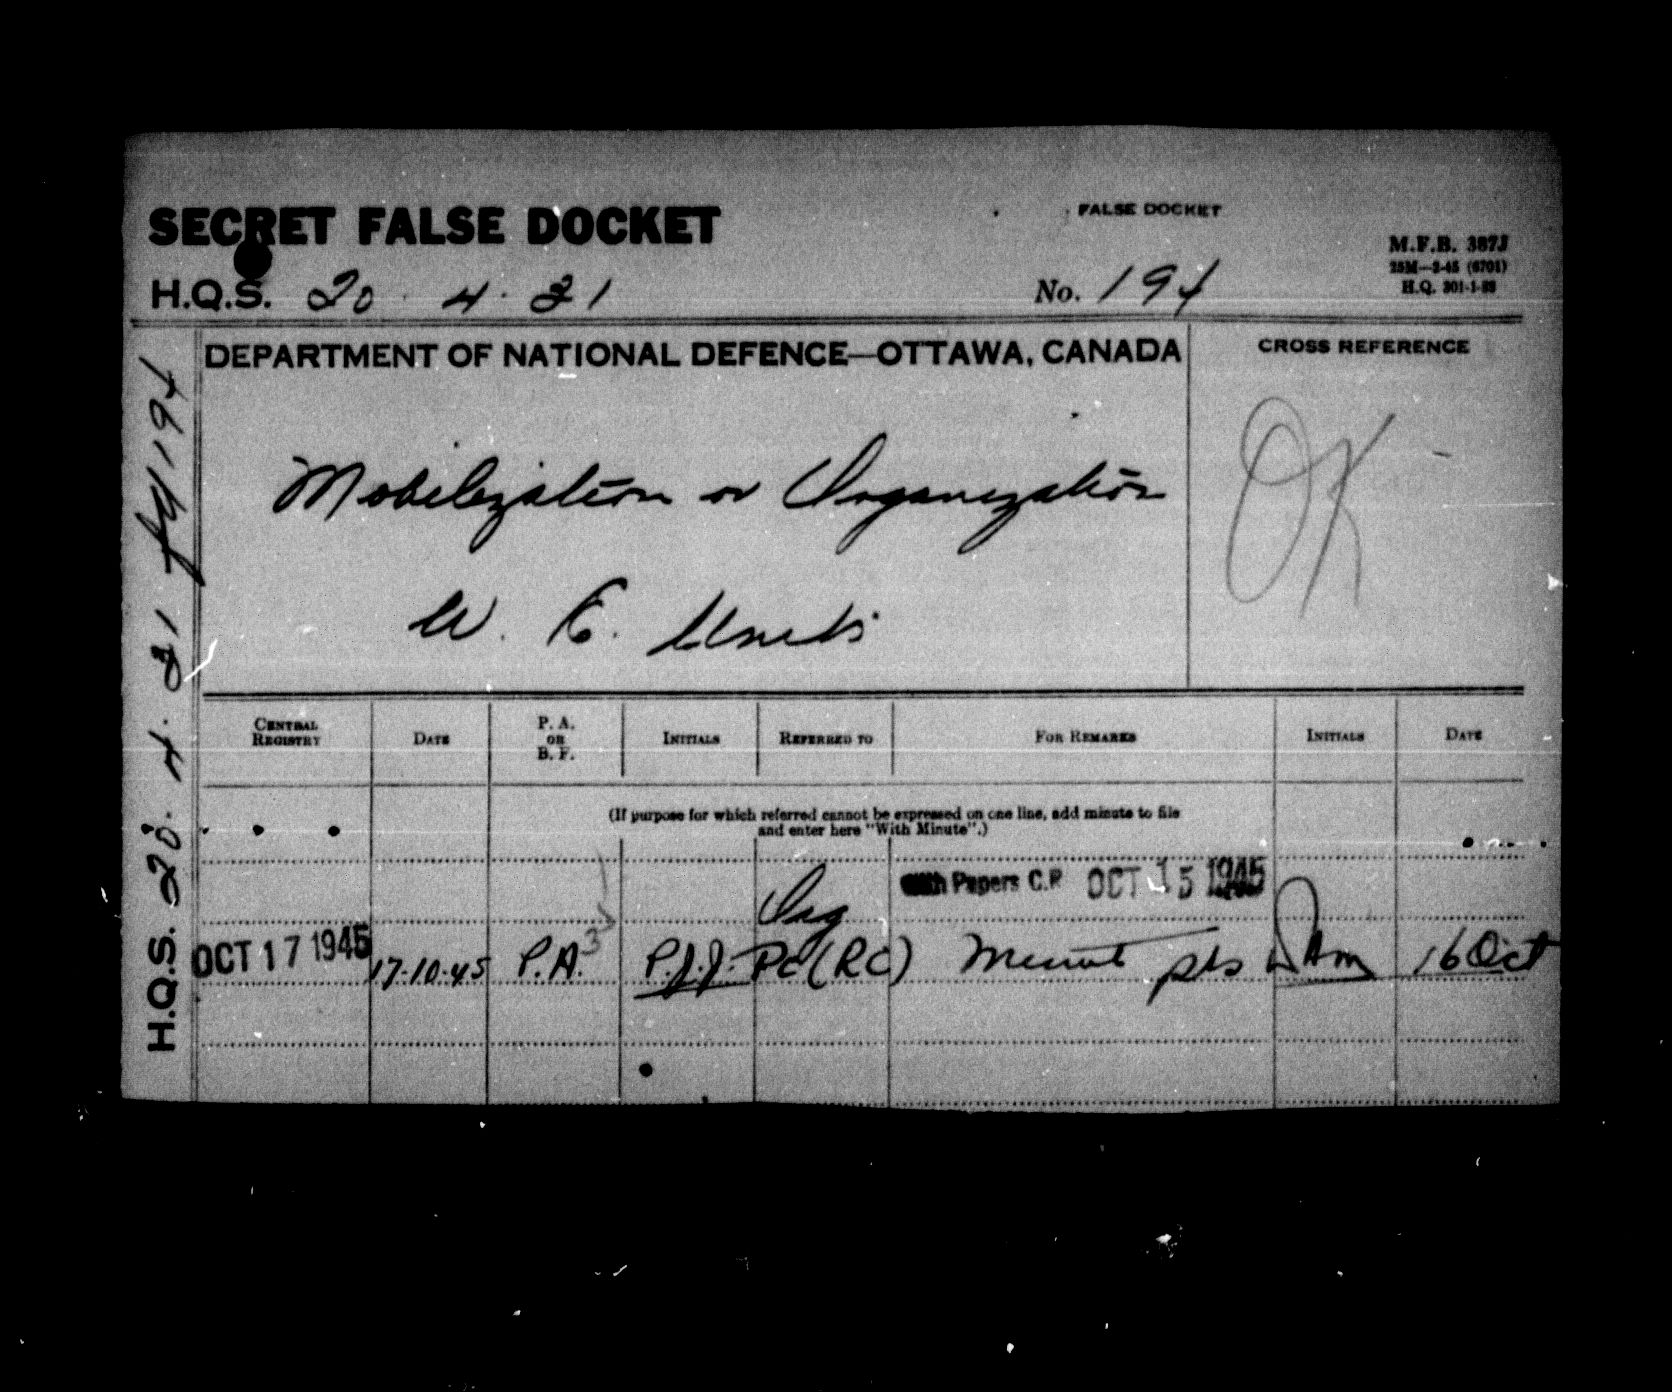 SECRET FALSE DOCKET
FALSE DOCKET
M.F.B. 387J
25M—2-45 (6701)
H.Q. 301-1-88
H.Q.S. 20 · 4 · 31
No. 194
DEPARTMENT OF NATIONAL DEFENCE—OTTAWA, CANADA
CROSS REFERENCE
Mobilization or Organization
W. E. Units
OK
CENTRAL REGISTRY
DATE
P. A. OR B. F.
INITIALS
REFERRED TO
FOR REMARKS
INITIALS
DATE
(If purpose for which referred cannot be expressed on one line, add minute to file
and enter here "With Minute".)
With Papers C.R OCT 15 1945
OCT 17 1945 17-10-45 P.A. P.J.J. PC (RC) Minute pls 16 Oct
H.Q.S. 20 · 4 · 31 194